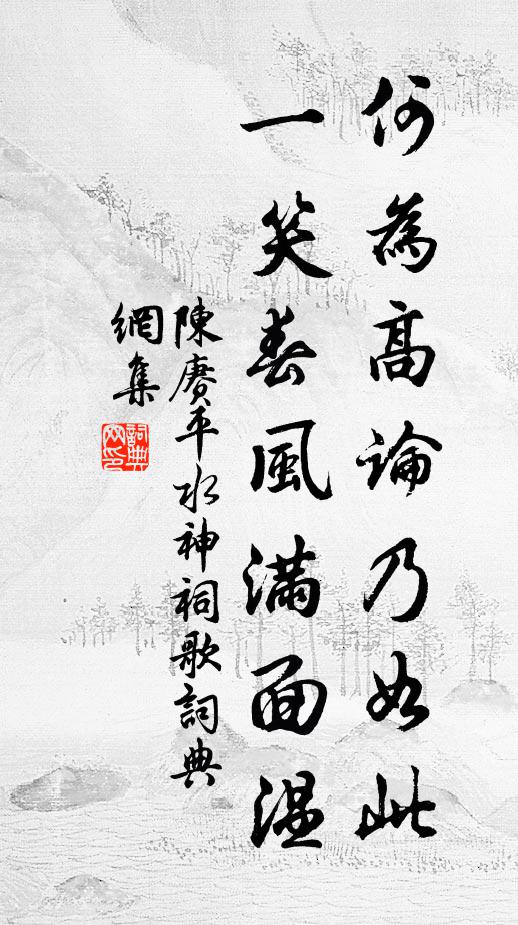 何為高論乃如此
一笑春風滿面溫
陳賡平水神祠歌詞典
網集
詞典網印